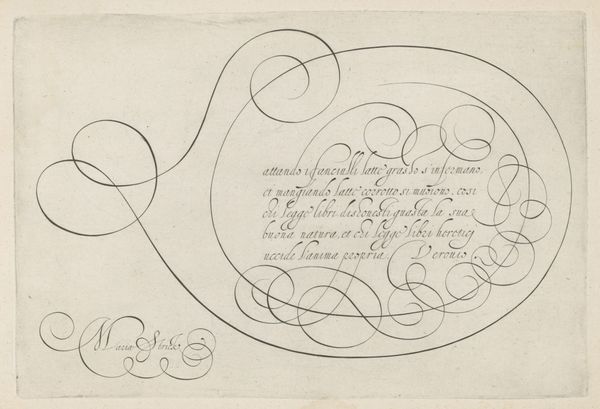 attando i fanciulli latte grasso s'infermano,
et mangiando latte corrotto, si muoiono. cosi
chi legge libri dishonesti guasta la sua
buona natura, et chi legge libri heretici
uccide l'anima propria.
Maria Strick